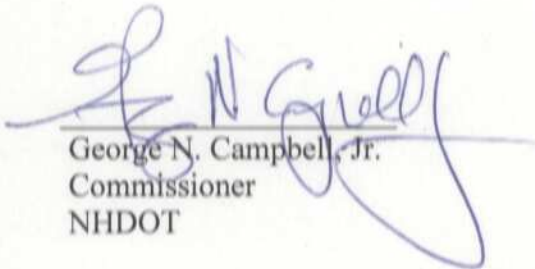 George N. Campbell, Jr.
Commissioner
NHDOT